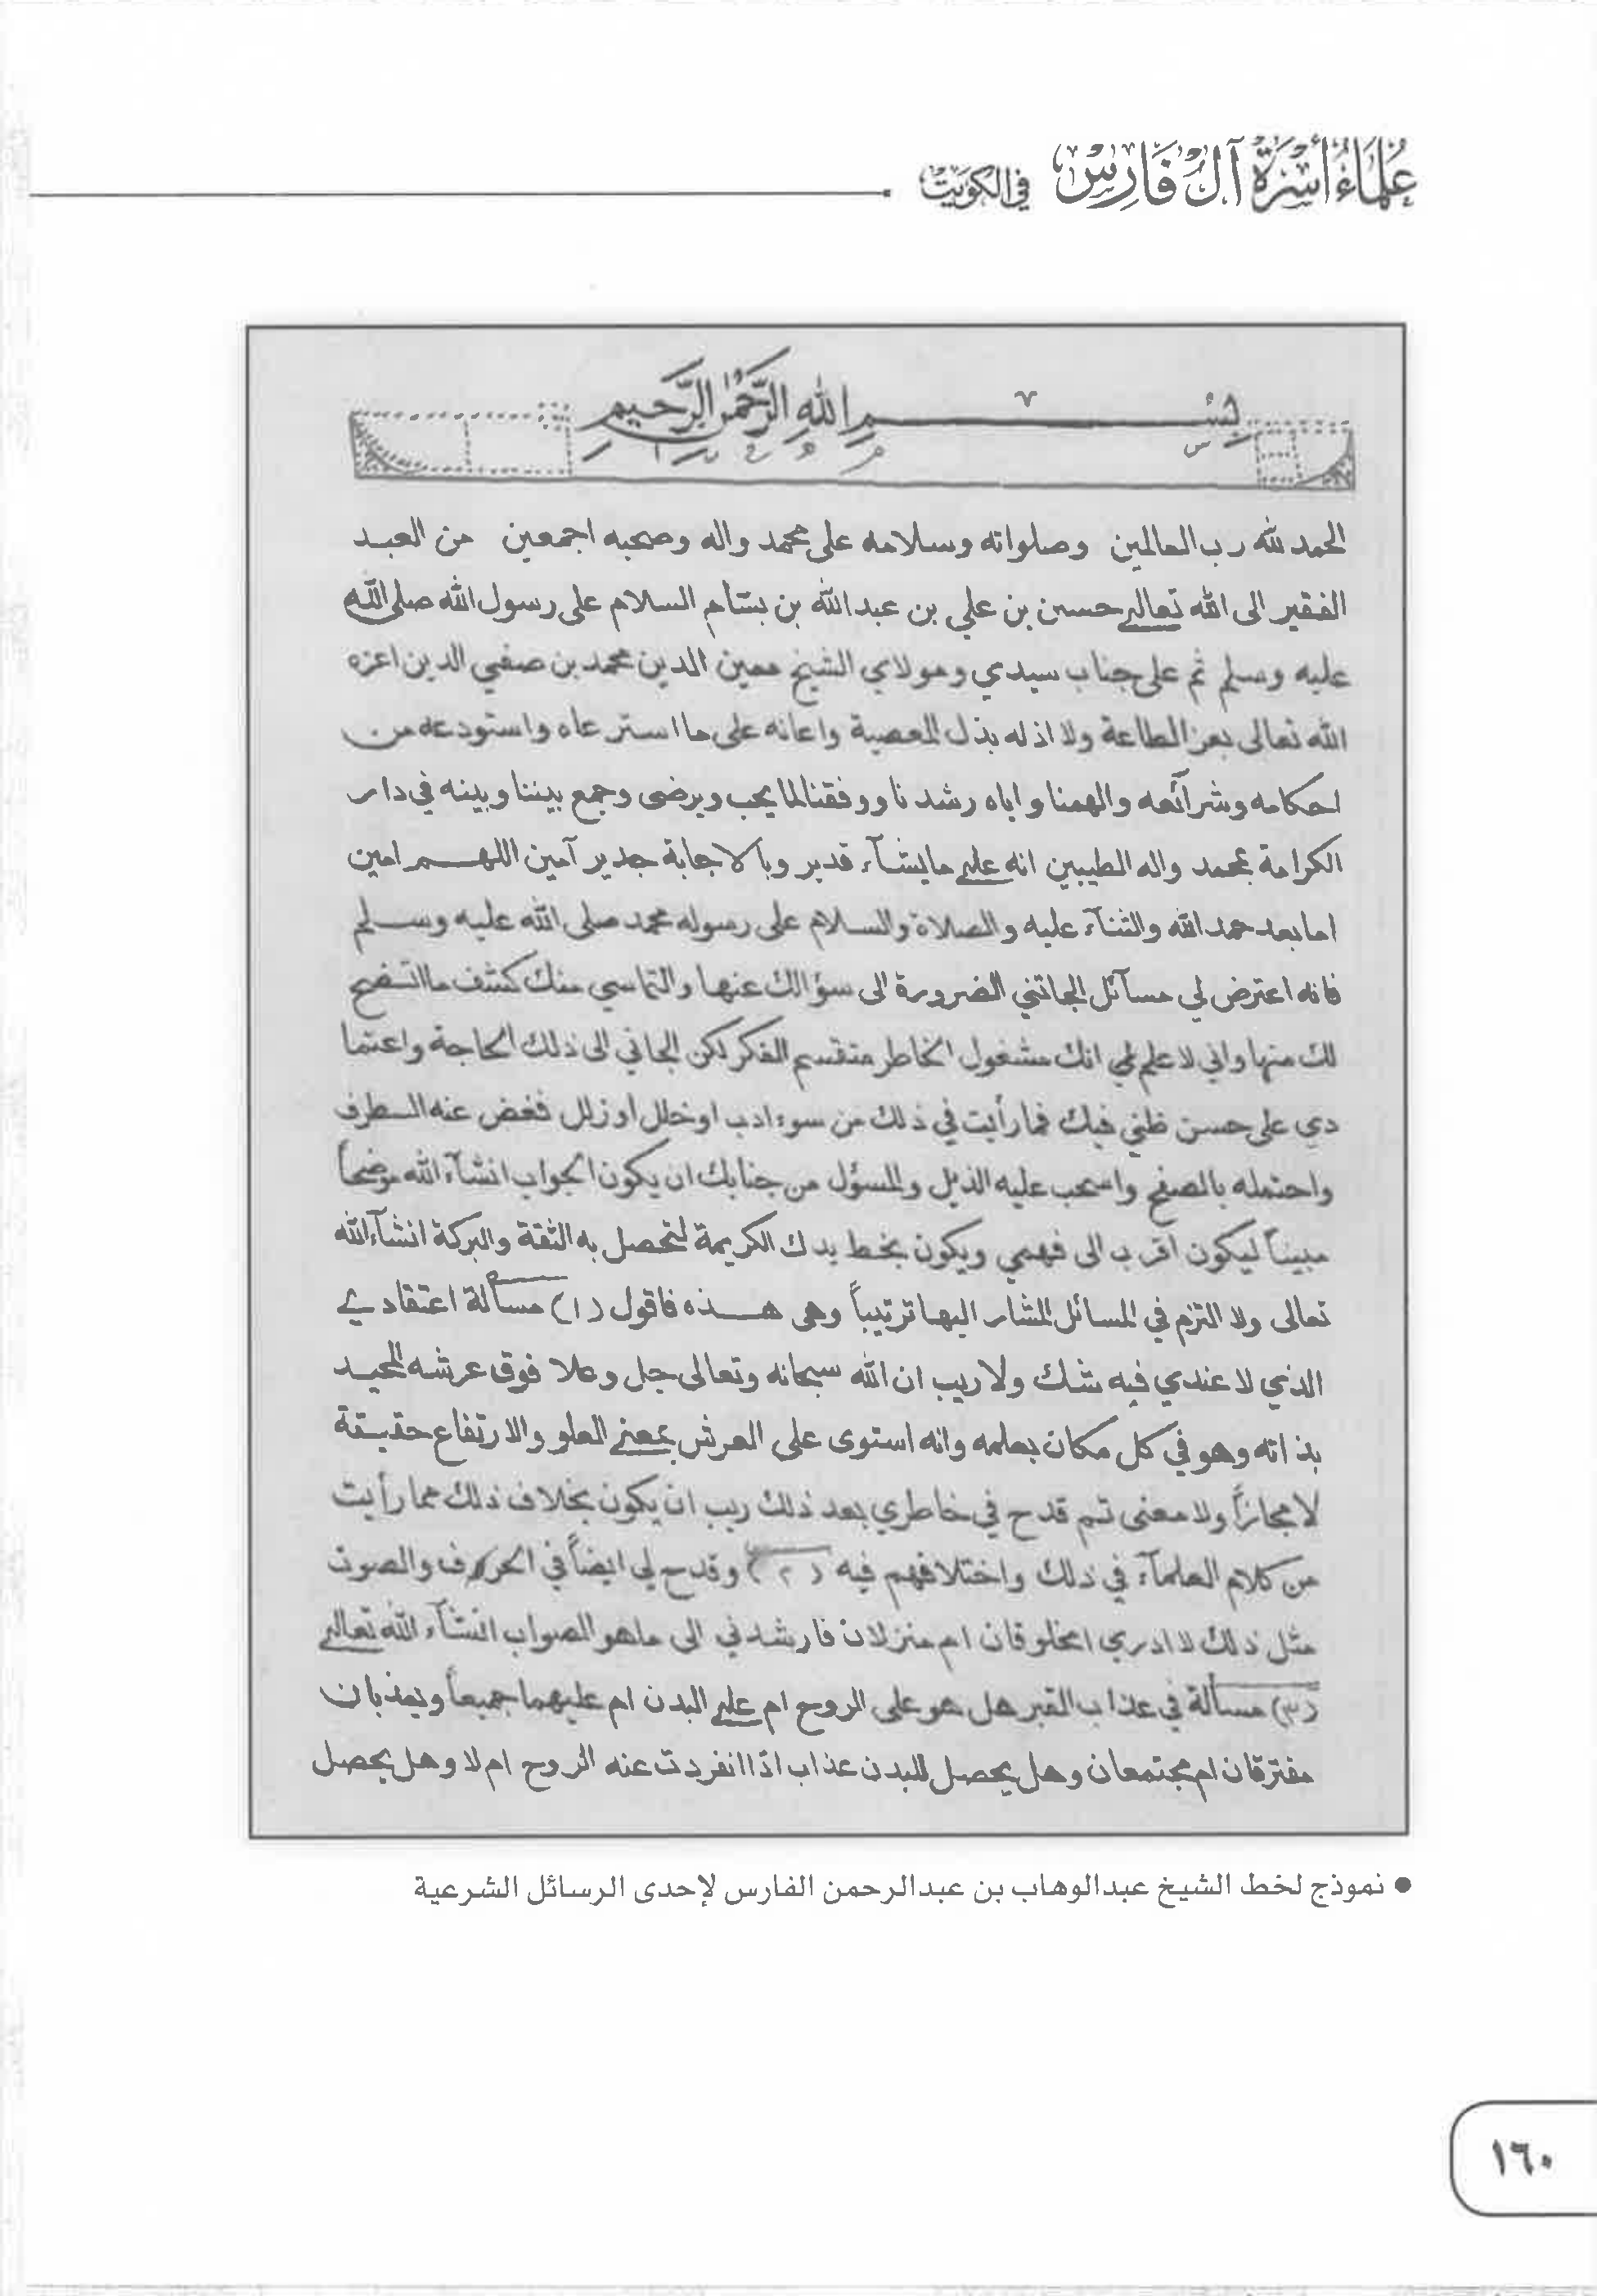 علماء أسرة آل فارس في الكويت
بسم الله الرحمن الرحيم
الحمد لله رب العالمين وصلواته وسلامه على محمد واله وصحبه اجمعين من العبد
الفقير الى الله تعالى حسين بن علي بن عبد الله بن بسام السلام على رسول الله صلى الله
عليه وسلم ثم على جناب سيدي ومولاي الشيخ معين الدين محمد بن صفي الدين اعزه
الله تعالى بعز الطاعة ولا اذله بذل المعصية واعانه على ما استرعاه واستودعه من
احكامه وشرآئعه والهمنا واياه رشدنا ووفقنا لما يحب ويرضى وجمع بيننا وبينه في دار
الكرامة بمحمد واله الطيبين انه على ما يشآء قدير وبالاجابة جدير آمين اللهم امين
اما بعد حمد الله والثنآء عليه والصلاة والسلام على رسوله محمد صلى الله عليه وسلم
فانه اعترض لي مسآئل الجاتني الضرورة الى سؤالك عنها والتماسي منك كشف ما اتضح
لك منها واني لا علم لي انك مشغول الخاطر منقسم الفكر لكن الجاني الى ذلك الحاجة واعتما
دي على حسن ظني فيك فما رأيت في ذلك من سوء ادب او خلل او زلل فغض عنه الطرف
واحتمله بالصفح واسحب عليه الذيل والمسؤل من جنابك ان يكون الجواب انشآء الله موضحاً
مبيناً ليكون اقرب الى فهمي ويكون بخط يدك الكريمة لتحصل به الثقة والبركة انشآء الله
تعالى ولا التزم في المسائل المشار اليها ترتيباً وهي هذه فاقول (١) مسألة اعتقادي
الذي لا عندي فيه شك ولا ريب ان الله سبحانه وتعالى جل وعلا فوق عرشه المجيد
بذاته وهو في كل مكان بعلمه وانه استوى على العرش بمعنى العلو والارتفاع حقيقة
لا مجازاً ولا معنى ثم قدح في خاطري بعد ذلك ريب ان يكون بخلاف ذلك مما رأيت
من كلام العلمآء في ذلك واختلافهم فيه (٢) وقدح لي ايضاً في الحروف والصوت
مثل ذلك لا ادري امخلوقان ام منزلان فارشدني الى ما هو الصواب انشآء الله تعالى
(٣) مسألة في عذاب القبر هل هو على الروح ام على البدن ام عليهما جميعاً ويعذبان
مفترقان ام مجتمعان وهل يحصل للبدن عذاب اذا انفردت عنه الروح ام لا وهل يحصل
● نموذج لخط الشيخ عبدالوهاب بن عبدالرحمن الفارس لإحدى الرسائل الشرعية
١٦٠